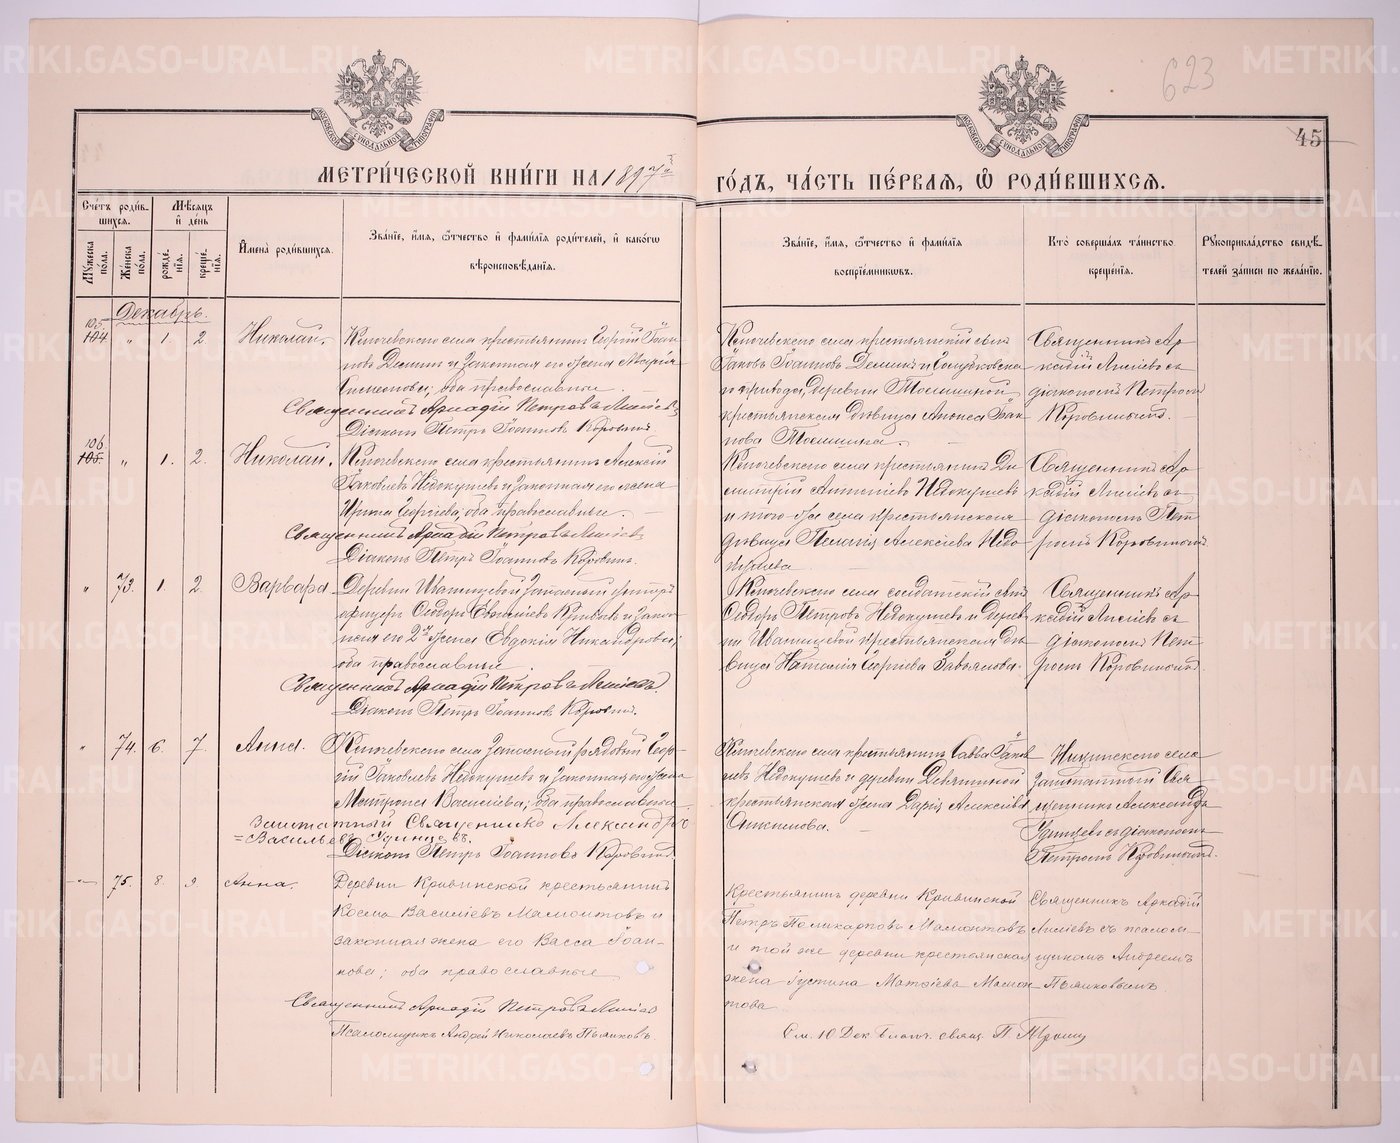 623
45
МОСКОВСКОЙ СѴНОДАЛЬНОЙ ТИПОГРАФІИ
МОСКОВСКОЙ СѴНОДАЛЬНОЙ ТИПОГРАФІИ
МЕТРИ́ЧЕСКОЙ КНИ́ГИ НА 1897й
ГО́ДЪ, ЧА́СТЬ ПЕ́РВАЯ, Ѽ РОДИ́ВШИХСЯ.
Сче́тъ роди́в-
шихся.
Мѣ́сяцъ
и де́нь
Му́жеска по́ла.
Же́нска по́ла.
рожде́-
нія.
креще́-
нія.
И́мена̀ роди́вшихся.
Зва́ніе, и́мя, ѻ҆́тчество и фами́лія роди́телей, и како́гѡ
вѣроисповѣ́данія.
Зва́ніе, и́мя, ѻ҆́тчество и фами́лія
воспріе́мниковъ.
Кто̀ соверша́лъ та́инство
креще́нія.
Рукоприкла́дство свидѣ́-
телей за́писи по жела́нію.
Декабрь.
105.
104 " 1. 2. Николай.
Ключевскаго села крестьянинъ Георгій Іоан-
новъ Деминъ и законная его жена Марія
Симеонова; оба православные.
Священникъ Аркадій Петровъ Лисіевъ
Діаконъ Петръ Іоанновъ Коровинъ
Ключевскаго села крестьянскій сынъ
Іаковъ Іоанновъ Деминъ и
прихода, деревни
крестьянская дѣвица
нова
Священникъ Ар-
кадій Лисіевъ съ
діакономъ Петромъ
Коровинымъ.
106
105. " 1. 2. Николай.
Ключевскаго села крестьянинъ Алексій
Іаковлевъ Недокушевъ и законная его жена
Ирина Георгіева, оба православные.
Священникъ Аркадій Петровъ Лисіевъ
Діаконъ Петръ Іоанновъ Коровинъ.
Ключевскаго села крестьянинъ Ди-
митрій Недокушевъ
и того же села крестьянская
дѣвица Пелагія Алексіева Недо-
кушева
Священникъ Ар-
кадій Лисіевъ съ
діакономъ Пет-
ромъ Коровинымъ
" 73. 1. 2. Варвара
Деревни запасный унтеръ-
офицеръ Ѳеодоръ и закон-
ная его 2я жена Евдокія Никандрова;
оба православные.
Священникъ Аркадій Петровъ Лисіевъ
Діаконъ Петръ Іоанновъ Коровинъ.
Ключевскаго села солдатскій сынъ
Ѳеодоръ Петровъ Недокушевъ и дерев-
ни крестьянская дѣ-
вица Наталія Георгіева Завьялова.
Священникъ Ар-
кадій Лисіевъ съ
діакономъ Пет-
ромъ Коровинымъ
" 74. 6. 7. Анна.
Ключевскаго села запасный рядовой Геор-
гій Іаковлевъ Недокушевъ и законная его жена
Матрона Василіева; оба православные.
Заштатный Священникъ Александръ
Васильевъ
Діаконъ Петръ Іоанновъ Коровинъ
Ключевскаго села крестьянинъ Савва Іаков-
левъ Недокушевъ и деревни Девятиной
крестьянская жена Дарія Алексіева
села
заштатный Свя-
щенникъ Александръ
съ діакономъ
Петромъ Коровинымъ.
" 75. 8. 9. Анна.
Деревни Кривинской крестьянинъ
Косма Василіевъ Мамонтовъ и
законная жена его Васса Іоан-
нова; оба православные
Священникъ Аркадій Петровъ Лисіевъ
Псаломщикъ Андрей Николаевъ Пьянковъ
Крестьянинъ деревни Кривинской
Петръ Поликарповъ Мамонтовъ
и той же деревни крестьянская
жена Іустина Матѳіева Мамон-
това
Священникъ Аркадій
Лисіевъ съ псалом-
щикомъ Андреемъ
Пьянковымъ.
См. 10 Дек. Благ. свящ. П.